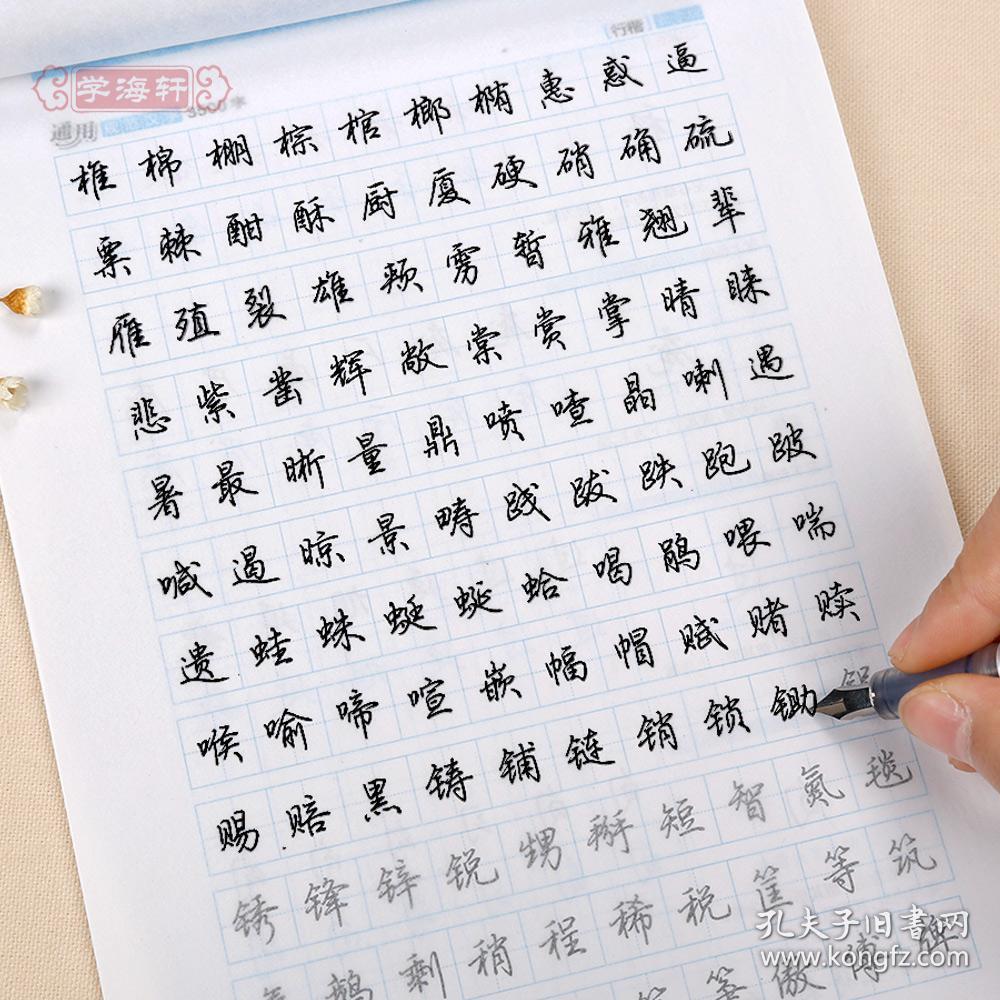 学海轩
行楷
通用规范汉字3500字
椎棉棚棕棺榔椭惠惑逼
粟棘酣酥厨厦硬硝确硫
雁殖裂雄颊雳暂雅翘辈
悲紫凿辉敞棠赏掌晴睐
暑最晰量鼎喷喳晶喇遇
喊遏晾景畴践跋跌跑跛
遗蛙蛛蜓蜒蛤喝鹃喂喘
喉喻啼喧嵌幅帽赋赌赎
赐赔黑铸铺链销锁锄锅
锈锋锌锐甥掰短智氮毯
氯鹅剩稍程稀税筐等筑
傲傅牌
孔夫子旧書网
www.kongfz.com